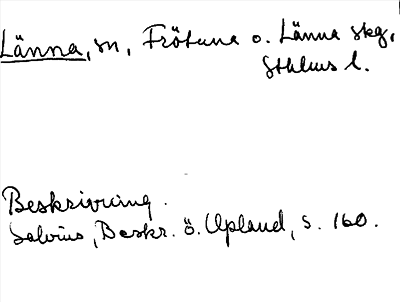 Länna, sn, Frötuna o. Länna skg,
Sthlms l.
Beskrivning.
Salvius, Beskr. ö. Upland, s. 160.